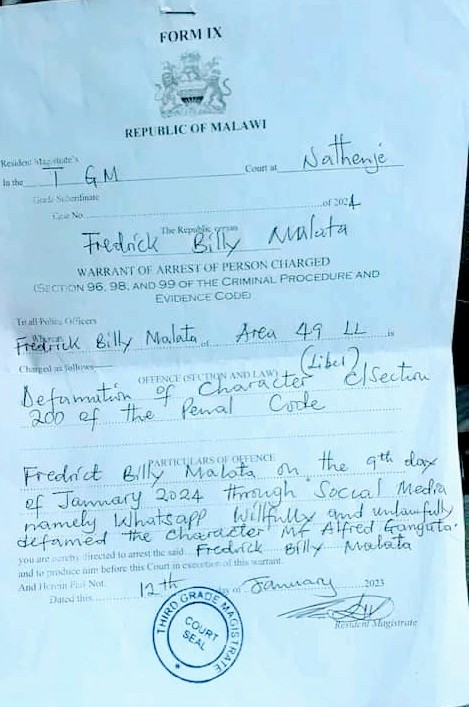 FORM IX
REPUBLIC OF MALAWI
Resident Magistrate's
In the T G M Court at Nathenje
Grade Subordinate
Case No. of 2024
The Republic versus
Fredrick Billy Malata
WARRANT OF ARREST OF PERSON CHARGED
(SECTION 96, 98, AND 99 OF THE CRIMINAL PROCEDURE AND
EVIDENCE CODE)
To all Police Officers
Whereas
Fredrick Billy Malata of Area 49 LL is
Charged as follows
OFFENCE (SECTION AND LAW)
Defamation of Character (Libel) c/Section
200 of the Penal Code
PARTICULARS OF OFFENCE
Fredrict Billy Malata on the 9th day
of January 2024 through Social Media
namely Whatsapp Willfully and unlawfully
defamed the character Mr Alfred Gangata.
you are hereby directed to arrest the said Fredrick Billy Malata
and to produce him before this Court in execution of this warrant.
And Herein Fail Not.
Dated this 12th day of January 2023
Resident Magistrate
THIRD GRADE MAGISTRATE
COURT
SEAL